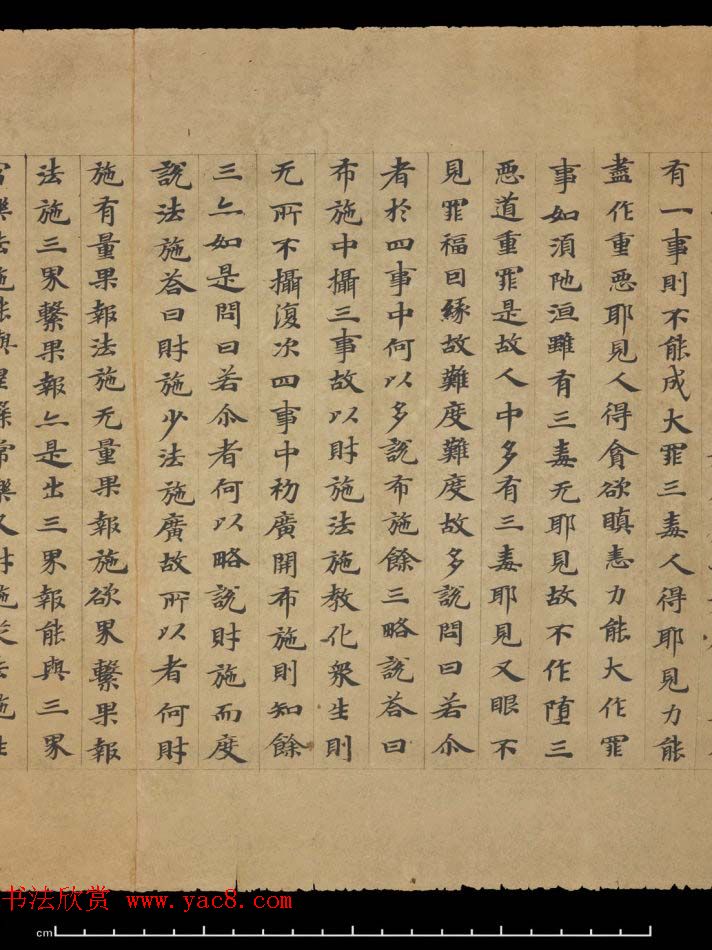 有一事則不能成大罪三毒人得耶見力能
盡作重惡耶見人得貪欲瞋恚力能大作罪
事如須陁洹雖有三毒无耶見故不作墮三
惡道重罪是故人中多有三毒耶見又眼不
見罪福因緣故難度難度故多說問曰若尒
者於四事中何以多說布施餘三略說荅曰
布施中攝三事故以財施法施教化衆生則
无所不攝復次四事中初廣開布施則知餘
三亦如是問曰若尒者何以略說財施而度
說法施荅曰財施少法施廣故所以者何財
施有量果報法施无量果報施欲界繫果報
法施三界繫果報亦是出三界報能與三界
书法欣赏 www.yac8.com
cm